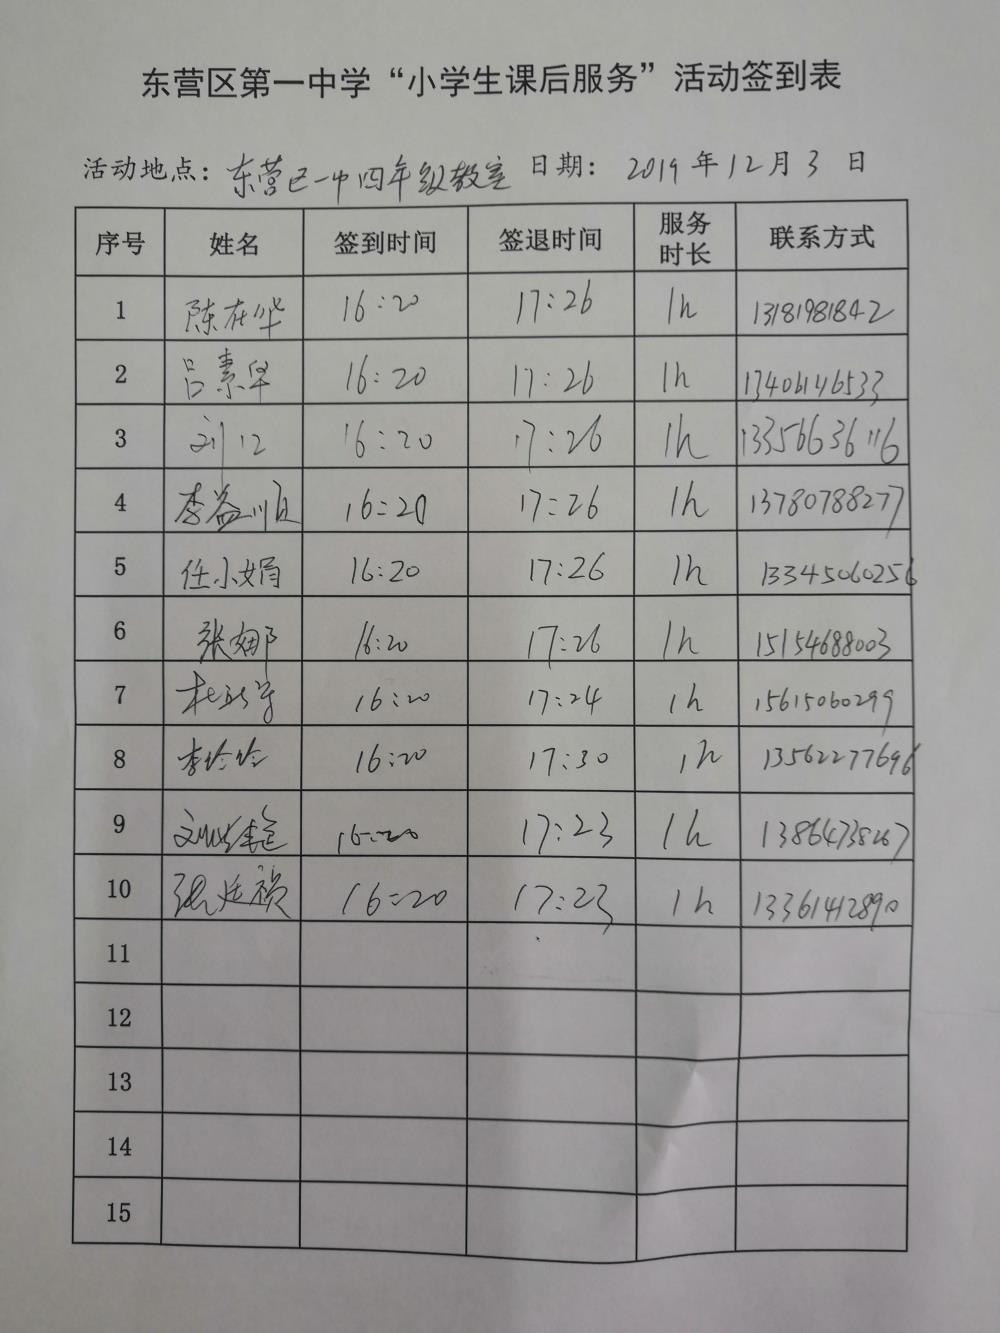 东营区第一中学“小学生课后服务”活动签到表
活动地点：东营区一中四年级教室 日期： 2019 年 12 月 3 日
序号 姓名 签到时间 签退时间 服务时长 联系方式
1 陈在华 16:20 17:26 1h 13181981842
2 吕素华 16:20 17:26 1h 13406146533
3 刘江 16:20 17:26 1h 13356636116
4 李益顺 16:20 17:26 1h 13780788277
5 任小娟 16:20 17:26 1h 13345060256
6 张娜 16:20 17:26 1h 15154688003
7 16:20 17:24 1h 15615060299
8 李玲玲 16:20 17:30 1h 13562277696
9 16:20 17:23 1h 13864738267
10 16:20 17:23 1h 13361412890
11
12
13
14
15